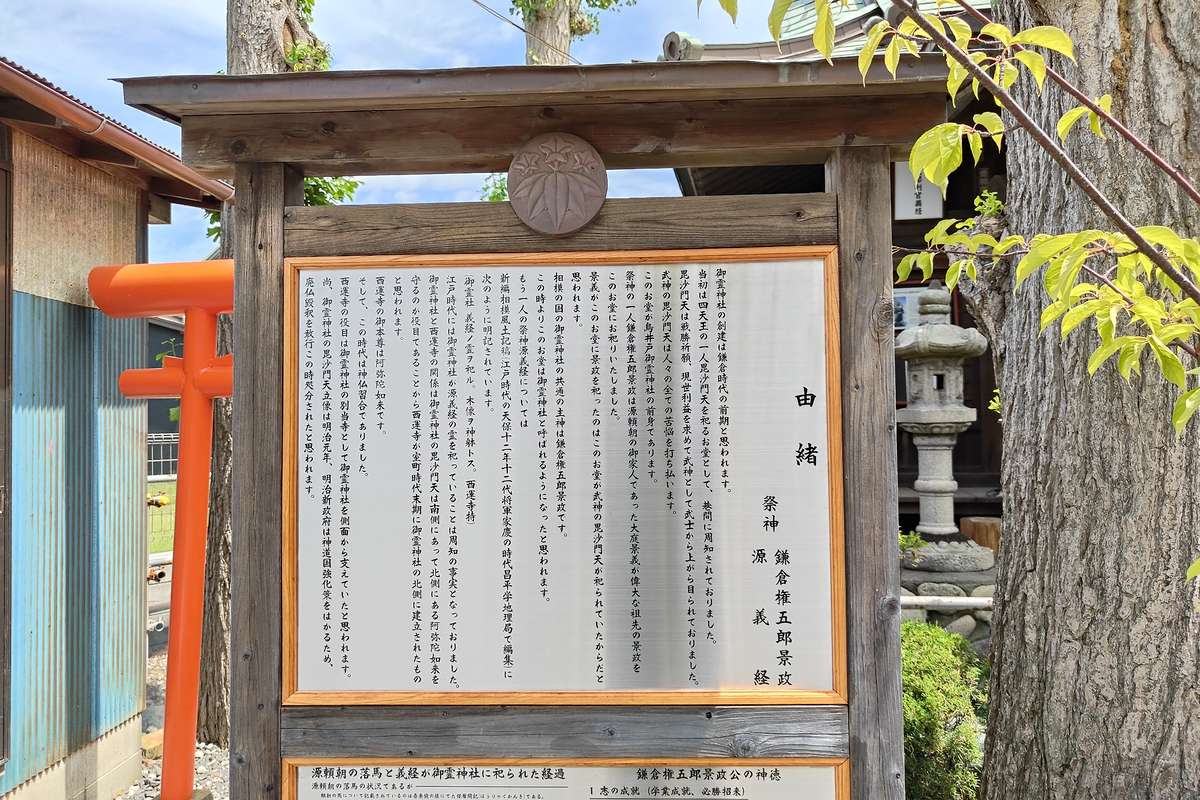 由緒
祭神 鎌倉権五郎景政
源義経
御霊神社の創建は鎌倉時代の前期と思われます。
当初は四天王の一人毘沙門天を祀るお堂として、巷間に周知されておりました。
毘沙門天は戦勝祈願、現世利益を求めて武神として武士から上がら目られておりました。
武神の毘沙門天は人々の全ての苦悩を打ち払います。
このお堂が鳥井戸御霊神社の前身であります。
祭神の一人鎌倉権五郎景政は源頼朝の御家人であった大庭景義が偉大な祖先の景政を
このお堂にお祀りいたしました。
景義がこのお堂に景政を祀ったのはこのお堂が武神の毘沙門天が祀られていたからだと
思われます。
相模の国の御霊神社の共通の主神は鎌倉権五郎景政です。
この時よりこのお堂は御霊神社と呼ばれるようになったと思われます。
もう一人の祭神源義経については
新編相模風土記稿(江戸時代の天保十二年十二代将軍家慶の時代昌平学地理局て編集)に
次のように明記されています。
(御霊社 義経ノ霊ヲ祀ル。木像ヲ神躰トス。西運寺持)
江戸時代には御霊神社が源義経の霊を祀っていることは周知の事実となっておりました。
御霊神社と西運寺の関係は御霊神社の毘沙門天は南側にあって北側にある阿弥陀如来を
守るのが役目てあることから西運寺が室町時代末期に御霊神社の北側に建立されたもの
と思われます。
西運寺の御本尊は阿弥陀如来てす。
そして、この時代は神仏習合てありました。
西運寺の役目は御霊神社の別当寺として御霊神社を側面から支えていたと思われます。
尚、御霊神社の毘沙門天立像は明治元年、明治新政府は神道国強化策をはかるため、
廃仏毀釈を敢行この時処分されたと思われます。
源頼朝の落馬と義経が御霊神社に祀られた経過
源頼朝の落馬の状況てあるが
鎌倉権五郎景政公の神徳
1 志の成就(学業成就、必勝招来)